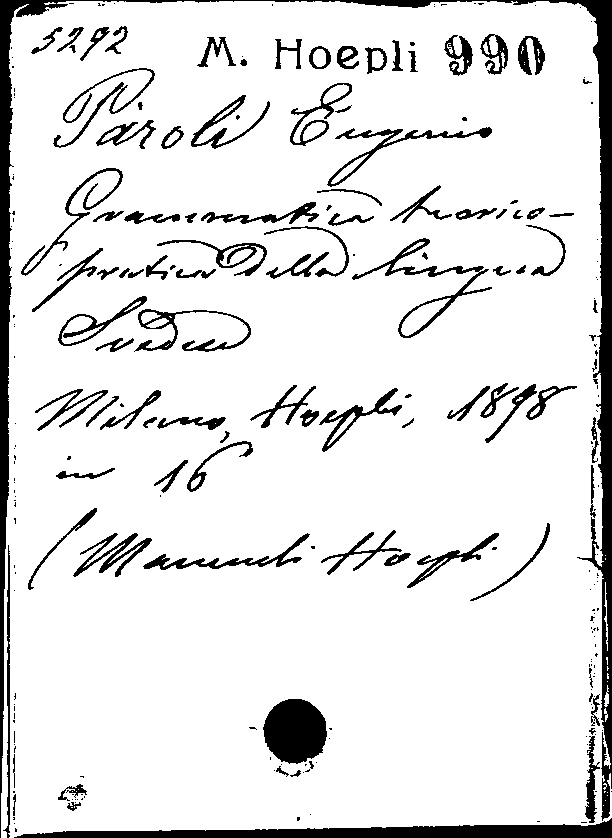 5292 M. Hoepli 990
Pàroli Eugenio
Grammatica teorico-
pratica della lingua
Svedese
Milano, Hoepli, 1898
in 16
(Manuali Hoepli)